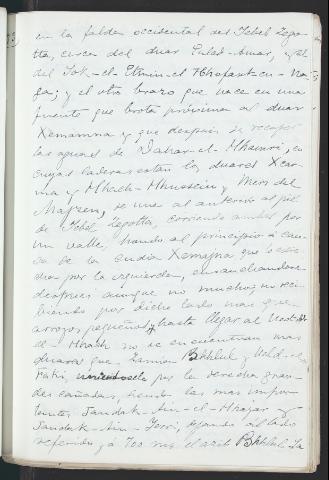 en la falda occidental del Yebel Zegotta, cerca del duar Culad-Amar, y
del Sok-el-Etnin-el
y el otro brazo que nace en una
fuente que brota próxima al duar
Xemamna y que después de recoger
las aguas de Dahar-el-Mhamri, en
cuyas laderas están los duares
ma y Mhalh-Mhussein y Mers del
se une al anterior al pié
de Yebel Zegotta, corriendo ambos por
un valle, hondo al principio á causa de la cudia Xemajna que lo estrecha por la izquierda, ensanchandose
despues aunque no mucho y no recibiendo por dicho lado mas que
arroyos pequeños y hasta llegar al Uad
el-Mhalh no se encuentran mas
duares que Bahlul y Uld-el-
Faki, por la derecha grandes cañadas, siendo las mas importantes Jandak-Ain-el-Mhajar y
Jandak-Ain-Jerri, dejando al lado
referido, á 700 ms. el Bahlul